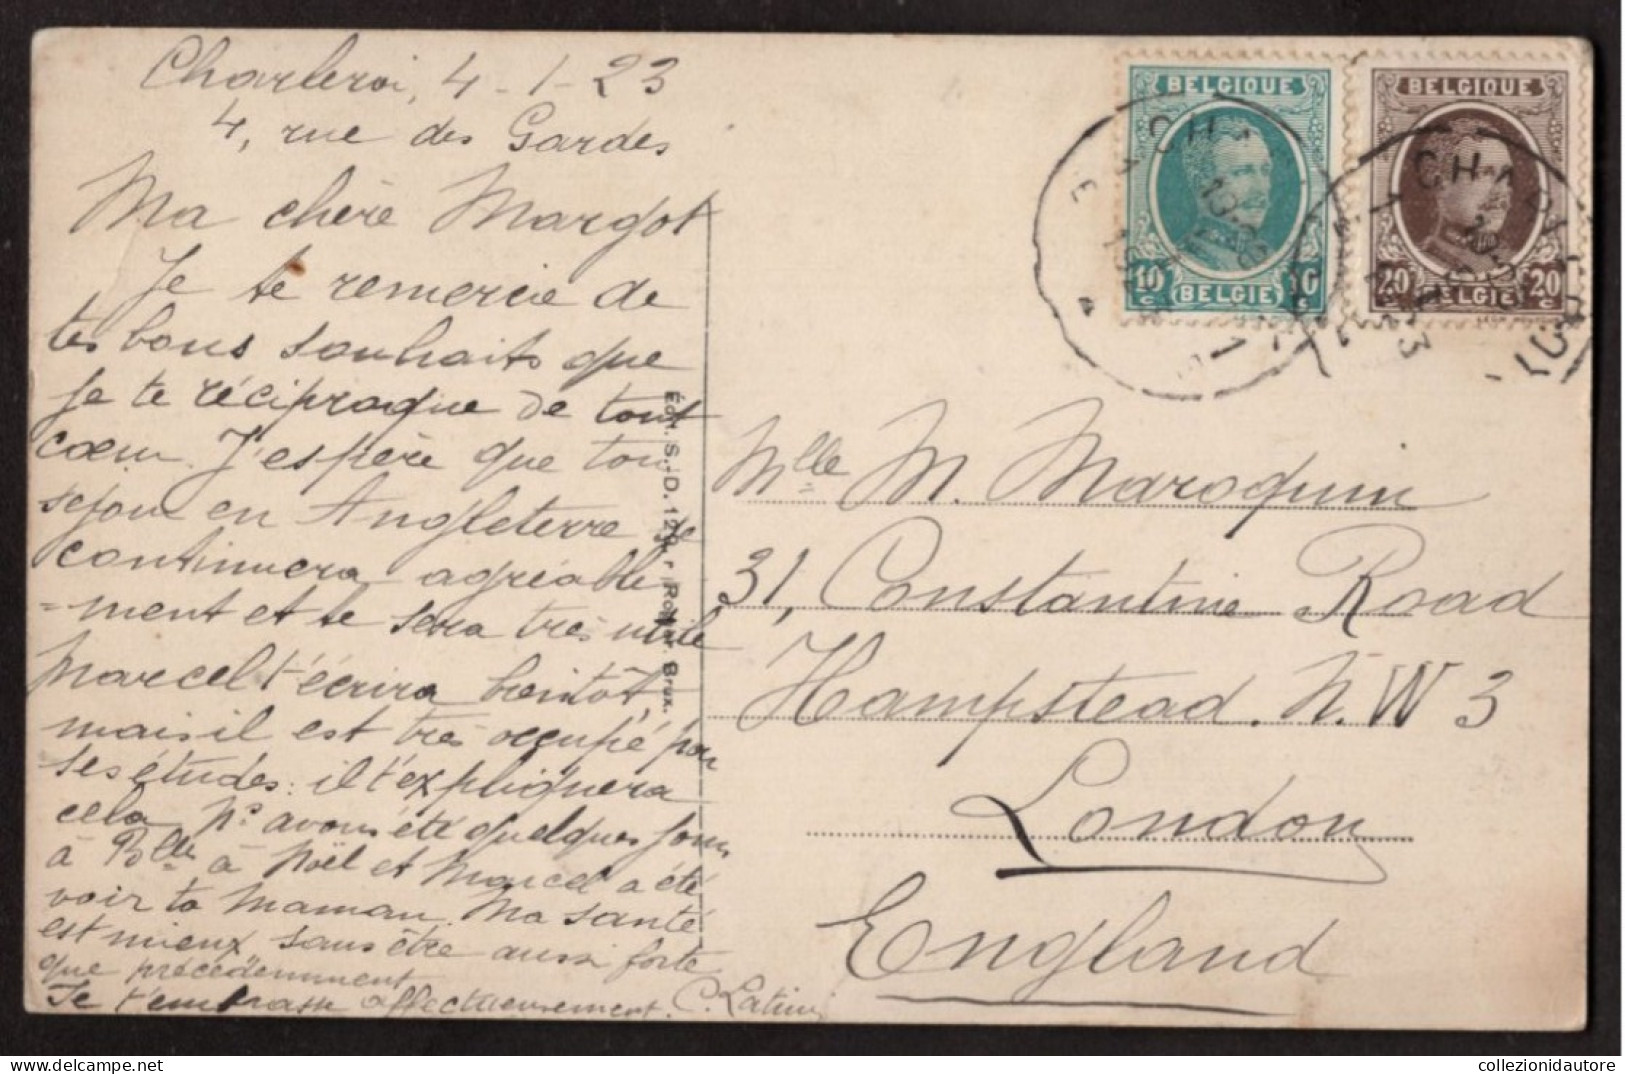 Charleroi, 4-1-23
4, rue des Gardes
Ma chère Margot
Je te remercie de
tes bons souhaits que
je te réciproque de tout
cœur. J'espère que ton
séjour en Angleterre se
continuera agréable
-ment et te sera très utile
Marcel t'écrira bientôt,
mais il est très occupé par
ses études: il t'expliquera
cela. Ns avons été quelques jours
à Blles à Noël et Marcel a été
voir ta Maman. Ma santé
est mieux, sans être aussi forte
que précédemment.
Je t'embrasse affectueusement.
Édit. S.-D. 129, r Brux.
BELGIQUE
10 c 10 c
BELGIE
BELGIQUE
20 c 20 c
BELGIE
Mlle M. Maroquin
31, Constantine Road
Hampstead. N.W 3
London
England
collezionidautore